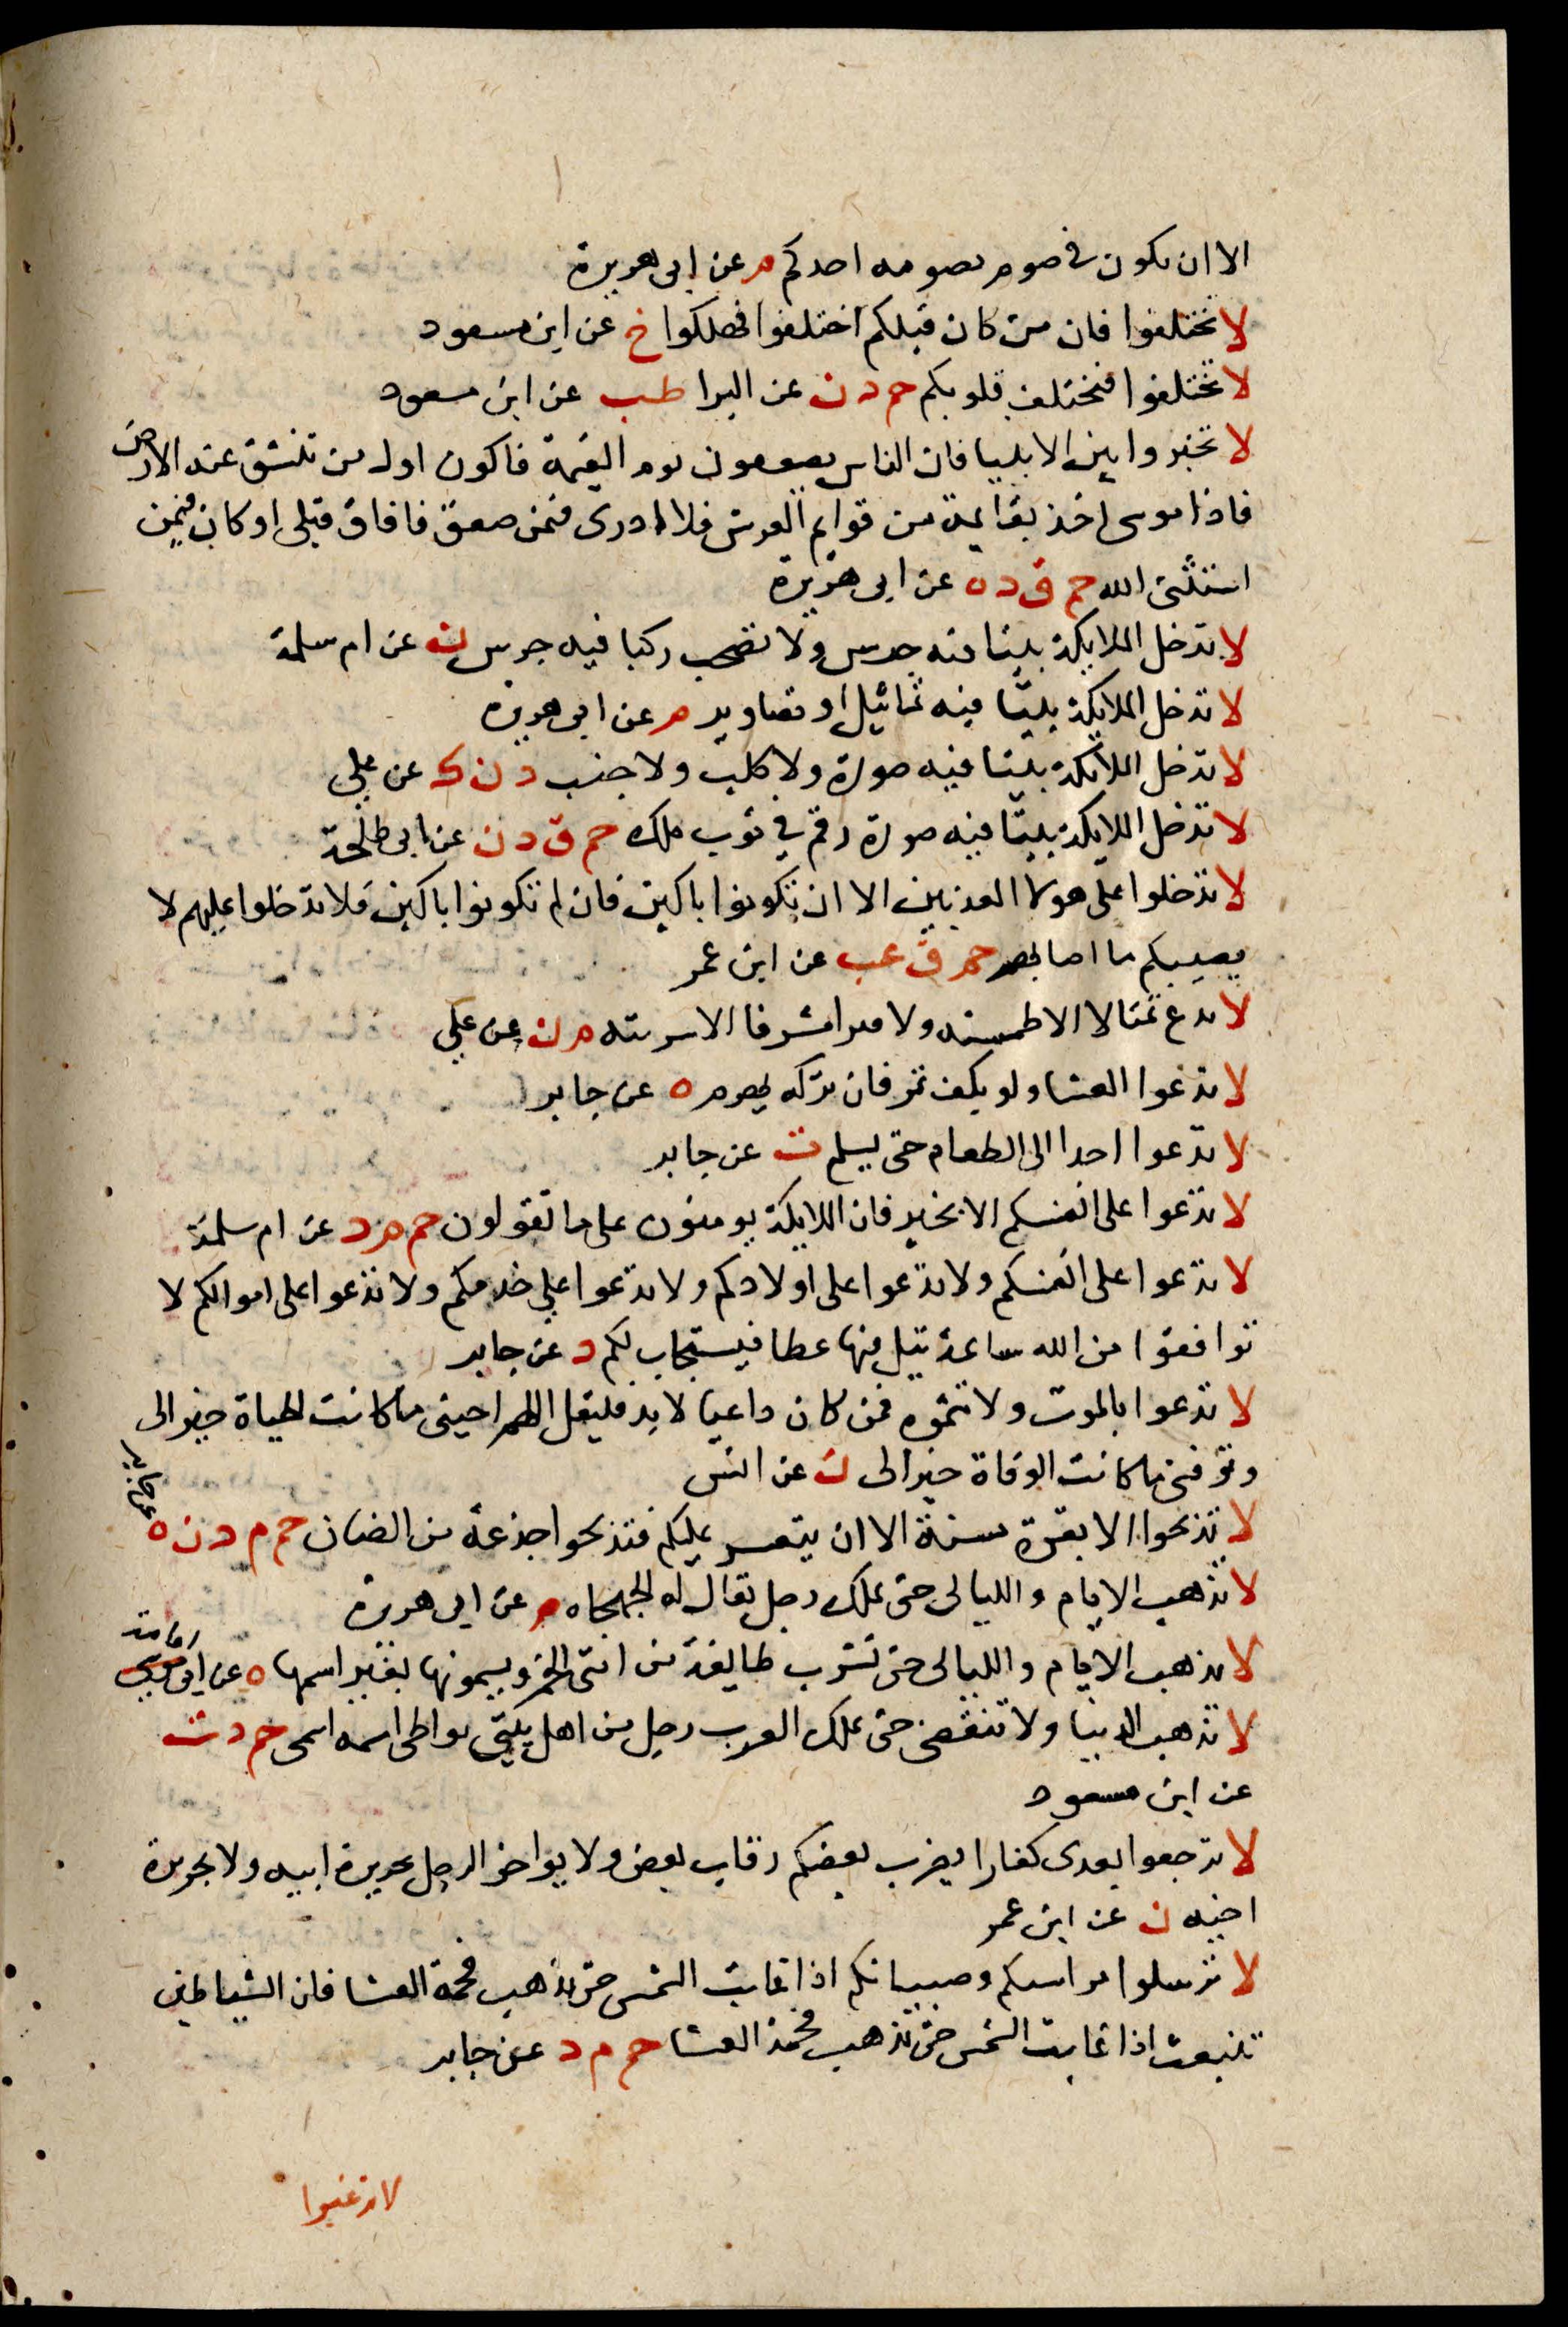 الا ان يكون في صوم يصومه احدكم م عن ابى هريرة
لا تختلفوا فان من كان قبلكم اختلفوا فهلكوا خ عن ابن مسعود
لا تختلفوا فتختلف قلوبكم حم د ن عن البرا طب عن ابن مسعود
لا تخيروا بين الانبيا فان الناس يصعقون يوم القيمة فاكون اول من تنشق عنه الارض
فاذا موسى اخذ بقايمة من قوايم العرش فلا ادرى فمن صعق فافاق قبلى او كان فيمن
استثنى الله حم ق د ه عن ابى هريرة
لا تدخل الملايكة بيتا فيه جرس ولا تصحب ركبا فيه جرس ن عن ام سلمة
لا تدخل الملايكة بيتا فيه تماثيل او تصاوير م عن ابى هريرة
لا تدخل الملائكة بيتا فيه صورة ولا كلب ولا جنب د ن ك عن على
لا تدخل الملايكة بيتا فيه صورة رقم في ثوب ملك حم ق د ن عن ابى طلحة
لا تدخلوا على هولا المعذبين الا ان تكونوا باكين فان لم تكونوا باكين فلا تدخلوا عليهم لا
يصيبكم ما اصابهم حم ق عب عن ابن عمر
لا تدع تمثالا الا طمسته ولا قبرا مشرفا الا سويته م ن عن على
لا تدعوا العشا ولو بكف تمر فان تركه يهرم ه عن جابر
لا تدعوا احدا الى الطعام حتى يسلم ت عن جابر
لا تدعوا على انفسكم الا بخير فان الملايكة يومنون على ما تقولون حم م د عن ام سلمة
لا تدعوا على انفسكم ولا تدعوا على اولادكم ولا تدعوا على خدمكم ولا تدعوا على اموالكم لا
توافقوا من الله ساعة نيل فيها عطا فيستجاب لكم د عن جابر
لا تدعوا بالموت ولا تتمنوه فمن كان داعيا لا بد فليقل اللهم احينى ما كانت الحياة خيرا لى
وتوفنى ما كانت الوفاة خيرا لى ن عن انس
لا تذبحوا الا بقرة مسنة الا ان يتعسر عليكم فتذبحوا جذعة من الضان حم م د ن ه عن جابر
لا تذهب الايام والليالى حتى يملك رجل يقال له الجهجاه م عن ابى هريرة
لا تذهب الايام والليالى حتى تشرب طايفة من امتى الخمر ويسمونها بغير اسمها ه عن ابى امامة
لا تذهب الدنيا ولا تنقضى حتى يملك العرب رجل من اهل بيتى يواطى اسمه اسمى حم د ت
عن ابن مسعود
لا ترجعوا بعدى كفارا يضرب بعضكم رقاب بعض ولا يواخذ الرجل بجريرة ابيه ولا بجريرة
اخيه ن عن ابن عمر
لا ترسلوا مواشيكم وصبيانكم اذا غابت الشمس حتى تذهب فحمة العشا فان الشياطين
تنبعث اذا غابت الشمس حتى تذهب فحمة العشا حم م د عن جابر
لا ترغبوا